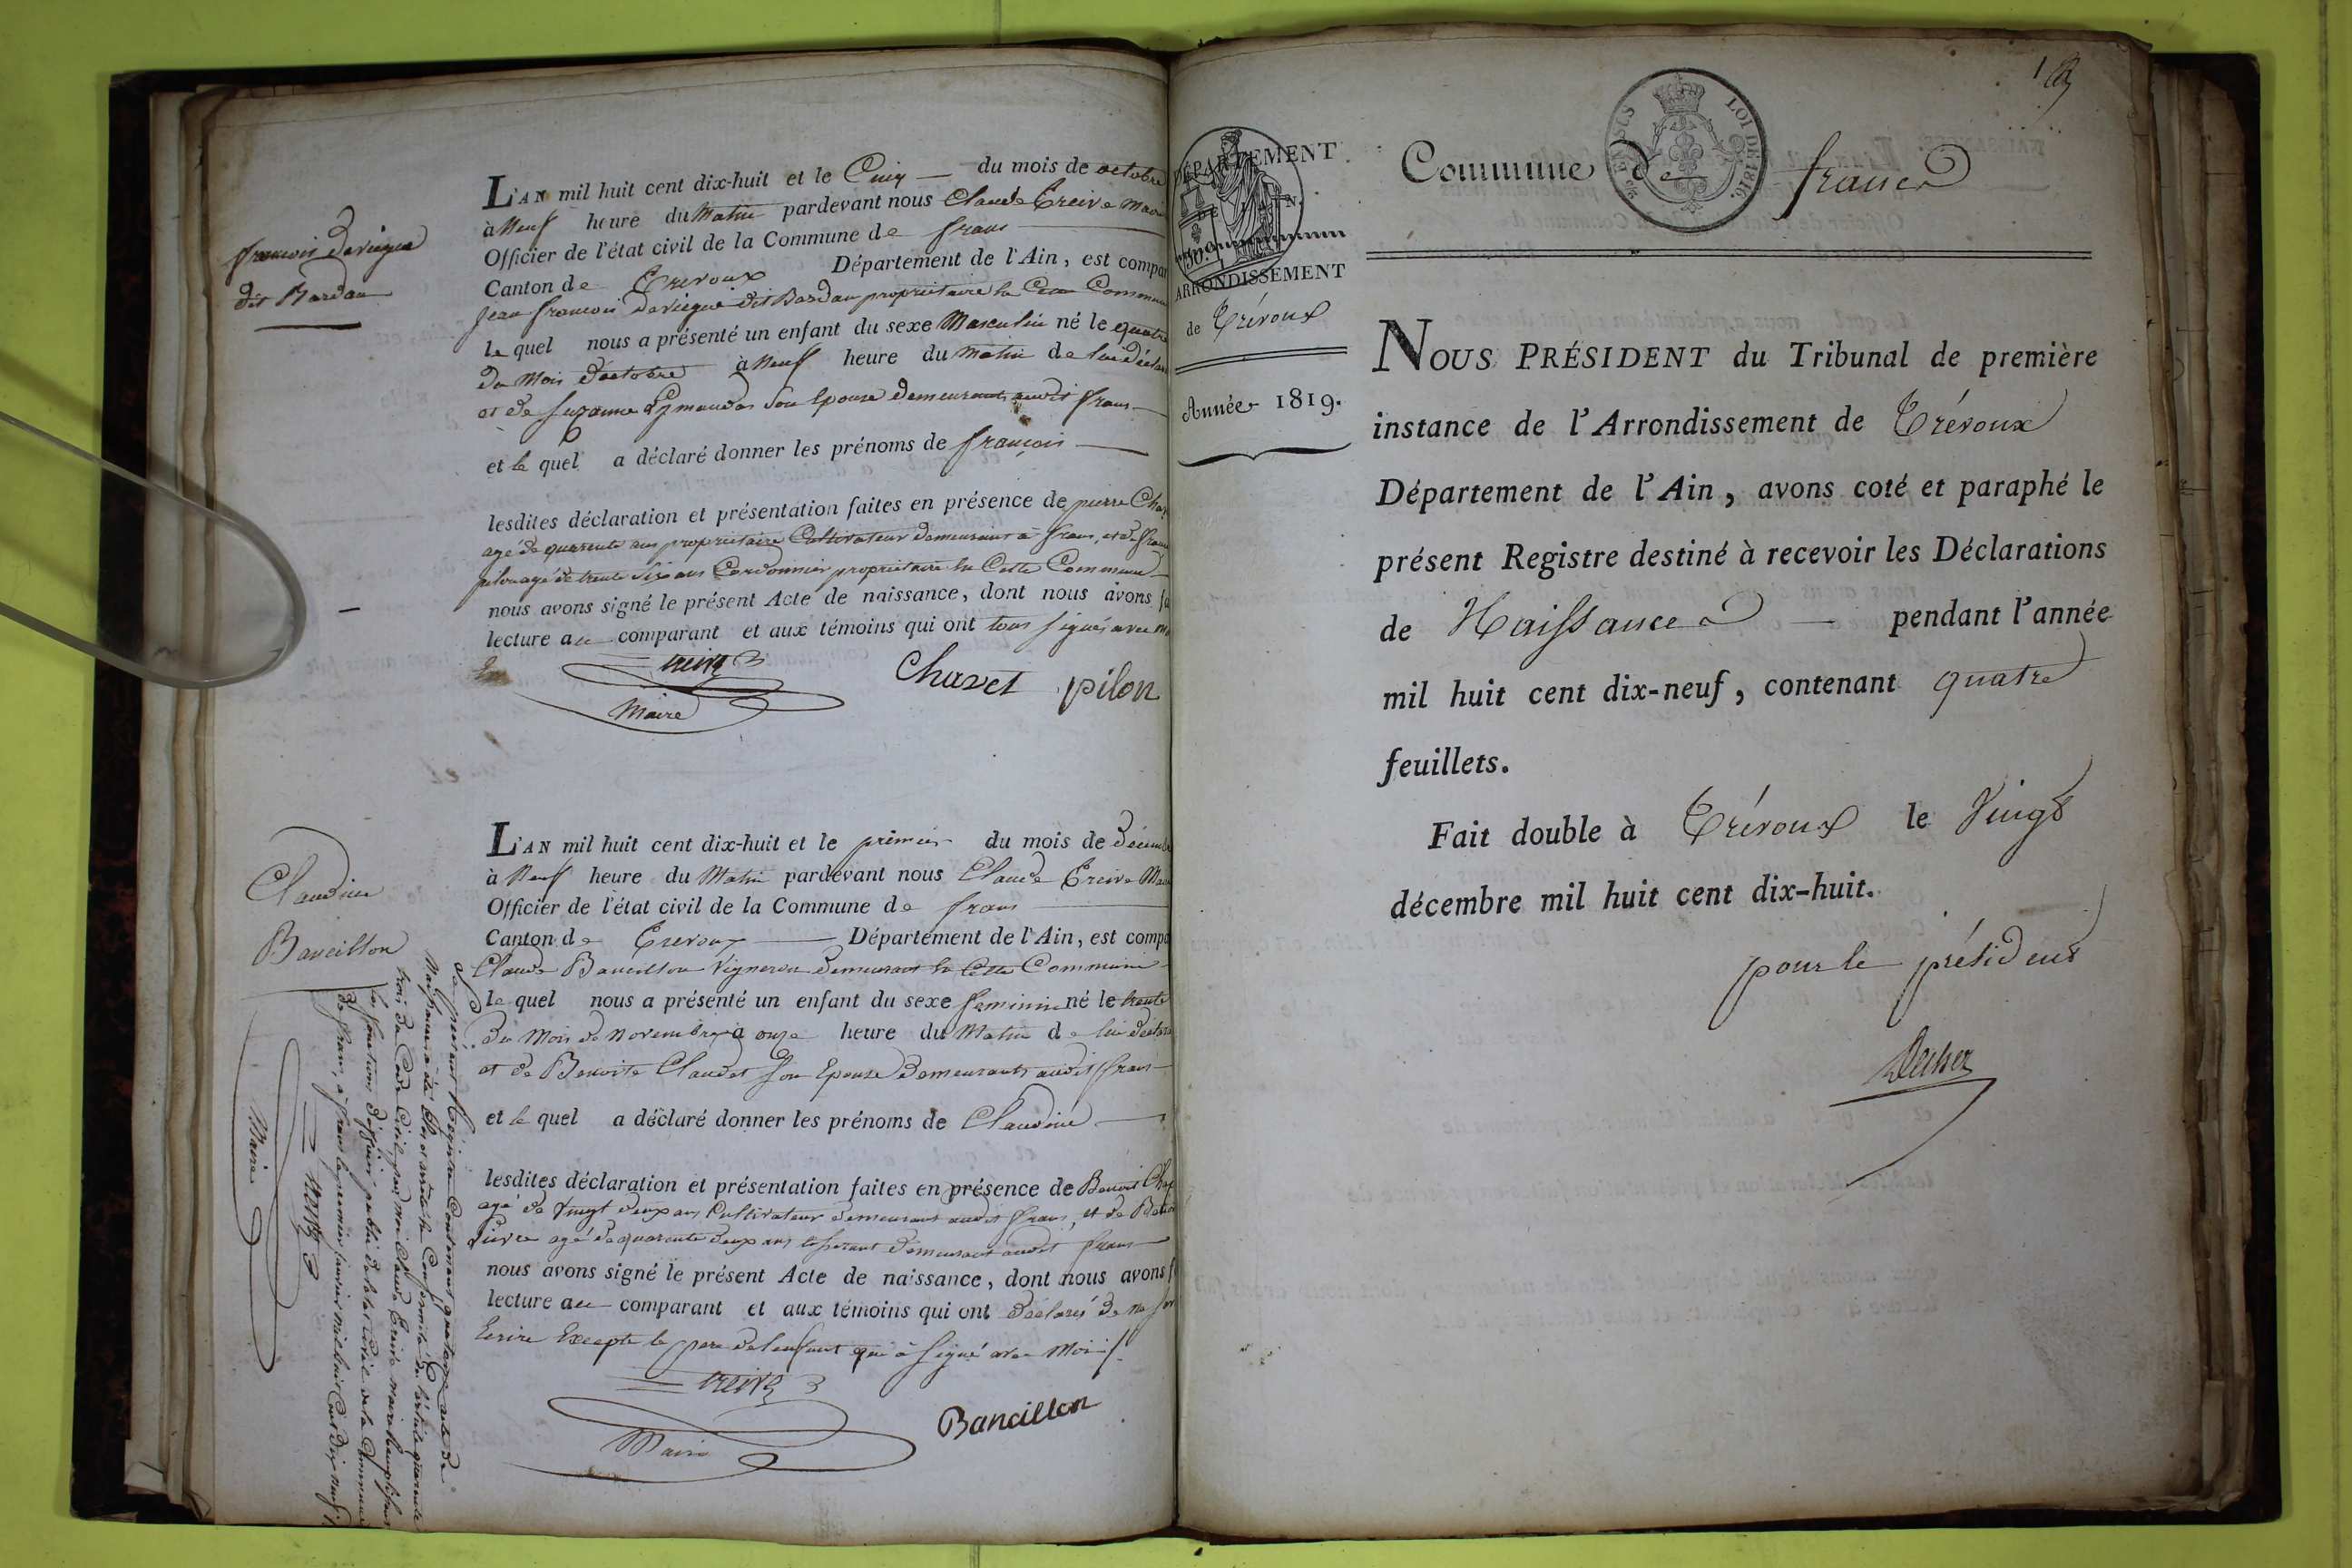 françois deveigue
dit Bardan
L'AN mil huit cent dix-huit et le Cinq du mois de octobre
à Neuf heure du Matin pardevant nous Claude Treive Maire
Officier de l'état civil de la Commune de frans
Canton de Trevoux Département de l'Ain, est compar
Jean françois deveigue dit Bardan propriétaire Commune
le quel nous a présenté un enfant du sexe Masculin né le quatre
du Mois d'octobre à Neuf heure du Matin de lui déclar
et de Suzanne son Epouse demeurants audit frans
et le quel a déclaré donner les prénoms de françois
lesdites déclaration et présentation faites en présence de pierre
agé de quarente ans propriétaire Cultivateur demeurant à frans, et de
pilon agé de trente Six ans Cordonnier propriétaire En Cette Commune
nous avons signé le présent Acte de naissance, dont nous avons
lecture au comparant et aux témoins qui ont tous signés avec
treive
Maire
Chavet pilon
Claudine
Bancillon
L'AN mil huit cent dix-huit et le premier du mois de Décembre
à Neuf heure du Matin pardevant nous Claude Treive
Officier de l'état civil de la Commune de frans
Canton de Trevoux Département de l'Ain, est compa
Claude Bancillon Vigneron demeurant En Cette Commune
le quel nous a présenté un enfant du sexe feminin né le trente
du Mois de Novembre à onze heure du Matin de lui déclar
et de Benoite Claudet son Epouse demeurants audit frans
et le quel a déclaré donner les prénoms de Claudine
lesdites déclaration et présentation faites en présence de Benoit
agé de Vingt deux ans Cultivateur demeurant audit frans, et de
agé de quarente deux ans demeurant audit frans
nous avons signé le présent Acte de naissance, dont nous avons
lecture au comparant et aux témoins qui ont déclarés de ne
Ecrire Excepté le pere de lenfant qui à signé avec Moi
treive
Maire
Bancillon
Le présent Registre Contenant quatorze acte de
Naissance à été Clos et arrêté En Conformité de l'article quarente
trois du Code Civil, par moi Claude Treive maire
les fonctions d'officier public de l'état Civil de la Commune
de frans, à frans le premier Janvier mil huit Cent dix neuf
treive
Maire
DÉPARTEMENT
DE L'AIN.
ARRONDISSEMENT
de Trévoux
Année 1819.
LOI DE 1816.
Commune de frans
NOUS PRÉSIDENT du Tribunal de première
instance de l'Arrondissement de Trévoux
Département de l'Ain, avons coté et paraphé le
présent Registre destiné à recevoir les Déclarations
de Naissance pendant l'année
mil huit cent dix-neuf, contenant quatre
feuillets.
Fait double à Trévoux le Vingt
décembre mil huit cent dix-huit.
pour le président